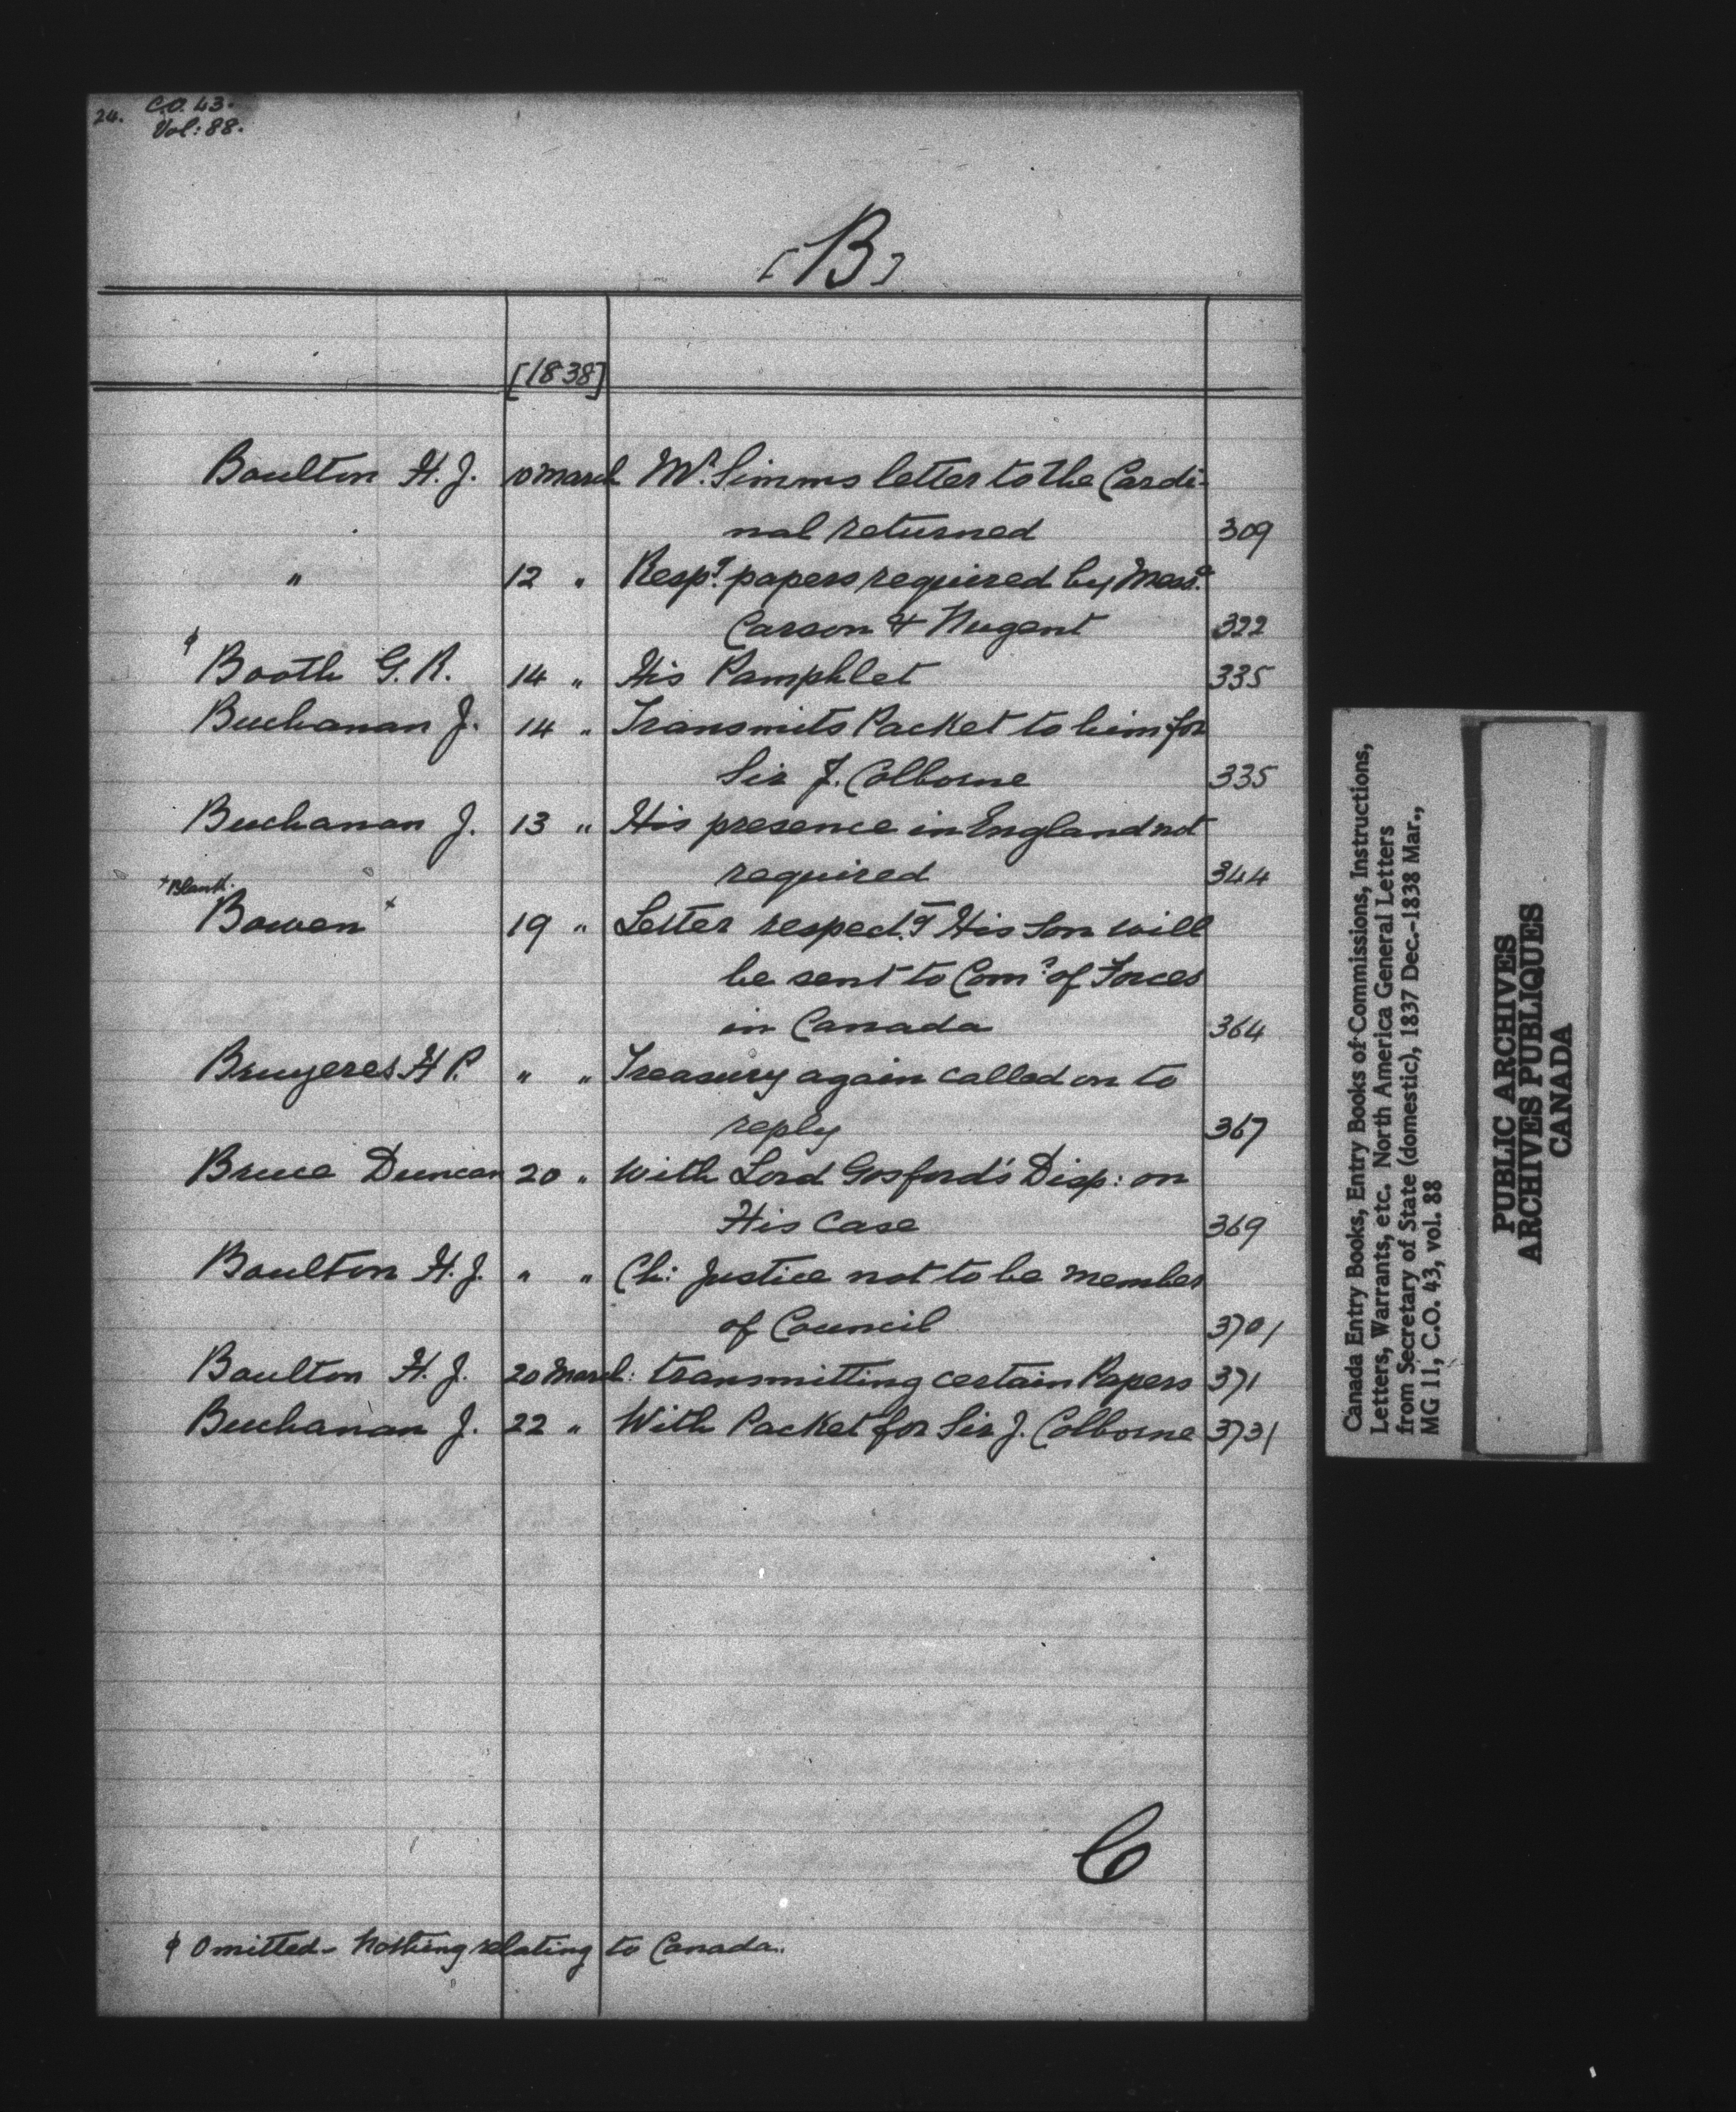 24. C.O. 43.
Vol: 88.
[B]
[1838]
Boulton H. J. 10 March Mr. Simms letter to the Cardi-
nal returned 309
" 12 " Respg. papers required by Messrs.
Carson & Nugent 322
φ Booth G. R. 14 " His Pamphlet 335
Buchanan J. 14 " Transmits Packet to him for
Sir J. Colborne 335
Buchanan J. 13 " His presence in England not
required 344
+Blank.
Bowen + 19 " Letter respectg His Son will
be sent to Comr. of Forces
in Canada 364
Bruyeres H P. " " Treasury again called on to
reply 367
Bruce Duncan 20 " With Lord Gosford's Disp: on
His Case 369
Boulton H. J. " " Ch: Justice not to be member
of Council 370/
Boulton H. J. 20 March: transmitting certain Papers 371
Buchanan J. 22 " With Packet for Sir J. Colborne 373/
C
φ Omitted - Nothing relating to Canada.
Canada Entry Books, Entry Books of Commissions, Instructions,
Letters, Warrants, etc. North America General Letters
from Secretary of State (domestic), 1837 Dec.-1838 Mar.,
MG 11, C.O. 43, vol. 88
PUBLIC ARCHIVES
ARCHIVES PUBLIQUES
CANADA